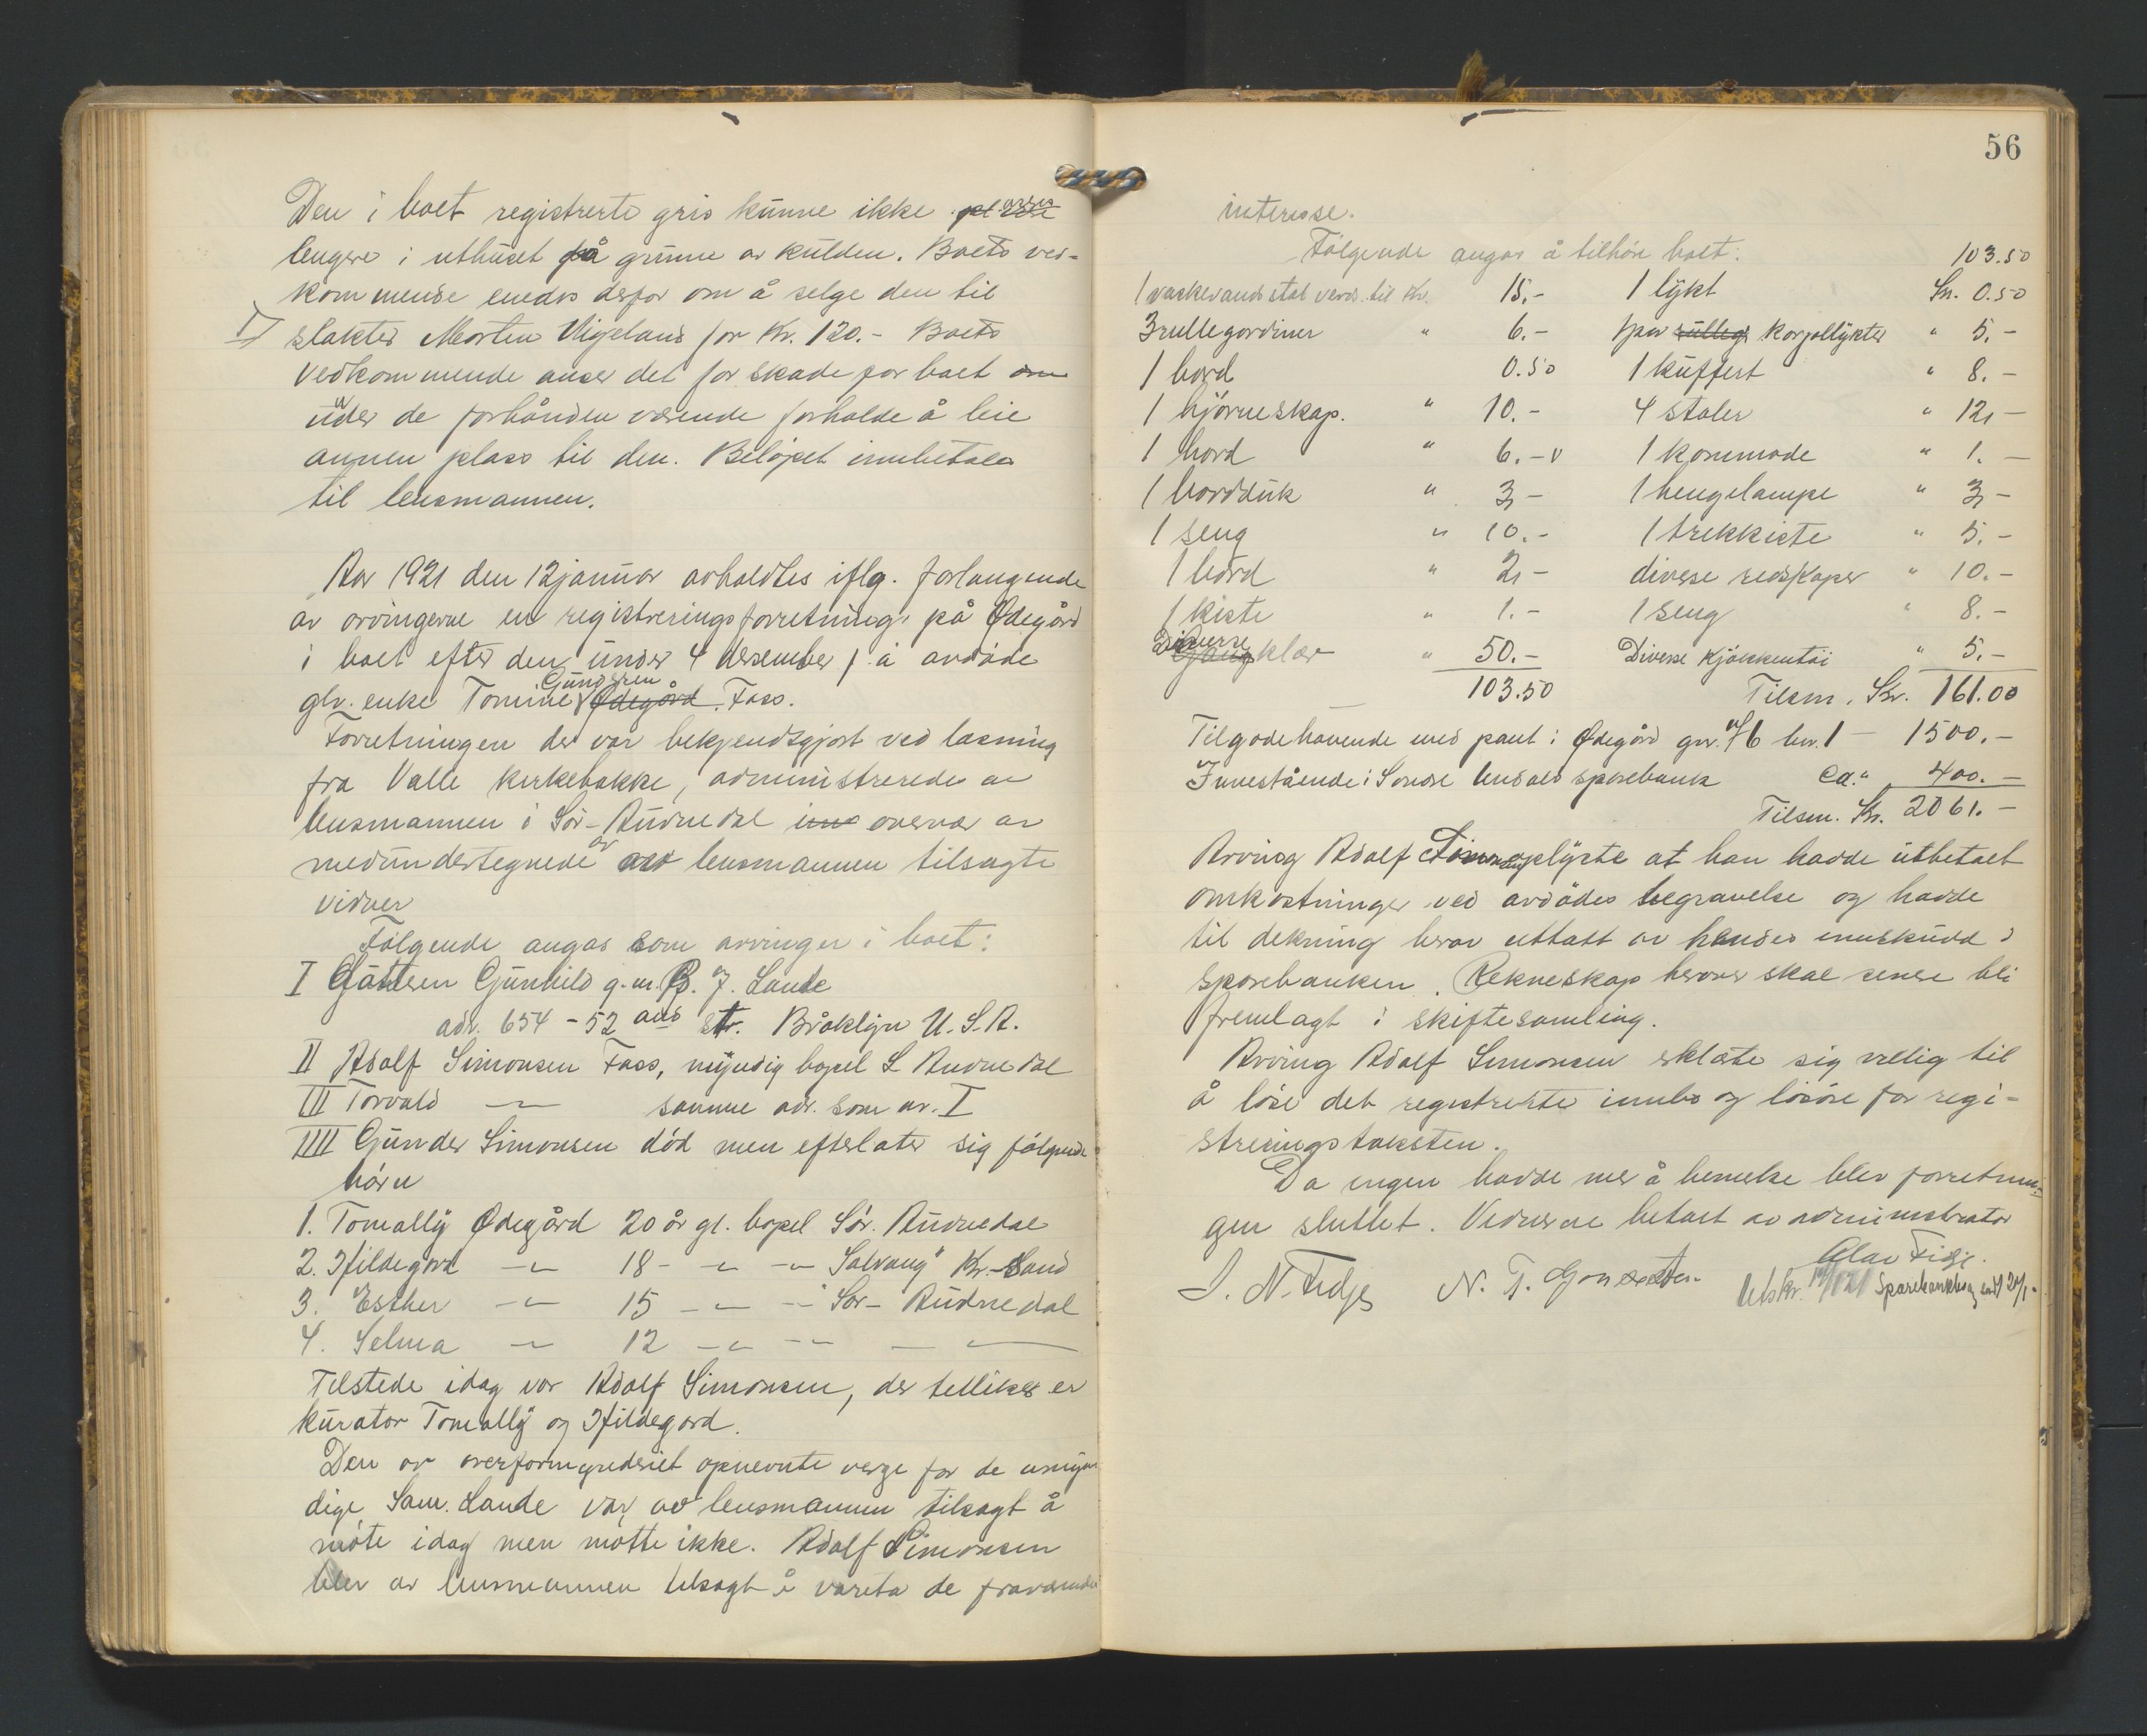 Den i boet registrerte gris kunne ikke
lengere i uthuset på grunn av kulden. Boets ved-
kommende enedes derfor om å selge den til
slakter Morten Vigeland for Kr. 120.- Boets
vedkommende anser det for skade for boet om
under de forhånden værende forholde å leie
annen plass til den. Beløpet innbetales
til lensmannen.
Aar 1921 den 12 januar avholdtes iflg. forlangende
av arvingerne en registreringsforretning på Ødegård
i boet efter den under 4 desember f.å avdøde
Gundersen
glv. enke Tomine Ødegård Foss.
Forretningen der var bekjendtgjort ved læsning
fra Valle kirkebakke, administreredes av
lensmannen i Sør-Audnedal overvær av
medundertegnede av lensmannen tilsagte
vidner
Følgende angas som arvinger i boet:
I Datteren Gunhild g.m. B. J. Lande
adr. 654 - 52 and str. Bråklyn U.S.A.
II Adolf Simonsen Foss, myndig bopel S Audnedal
III Torvald –"– samme adr. som nr. I
IIII Gunder Simonsen död men efterlater sig fölgende
börn
1. Tomally Ødegård 20 år gl. bopel Sör. Audnedal
2. Hildegard –"– 18 - –"– –"– Solvang" Kr.-Sand
3. Esther –"– 15 –"– –"– Sör-Audnedal
4. Selma –"– 12 –"– –"– –"–
Tilstede idag var Adolf Simonsen, der tillikes er
kurator Tomally og Hildegard.
Den av overformynderiet opnevnte verge for de umyn
dige, Sam. Lande var av lensmannen tilsagt å
möte idag men mötte ikke. Adolf Simonsen
blev av lensmannen tilsagt å vareta de fraværendes
56
interesse.
Følgende angas å tilhöre boet:
103.50
1 vaskevandstol verd. til Kr. 15.- 1 lykt Kr. 0.50
3 rullegardiner " 6.- 1 par rulleg korjollykter " 5.-
1 bord 0.50 1 kuffert " 8.-
1 hjörneskap. " 10.- 4 stoler " 12,-
1 bord " 6.- v 1 kommode " 1.-
1 bordduk " 3,- 1 hengelampe " 3,-
1 seng " 10.- 1 trekkiste " 5.-
1 bord " 2,- diverse redskaper " 10.-
1 kiste " 1.- 1 seng " 8.-
Diverse
Gangklær " 50.- Diverse Kjøkkentöi " 5.-
103.50 Tilsm. Kr. 161.00
Tilgodehavende med pant i Ødegård gnr. 46 bnr. 1 - 1500.-
Innestående i Söndre Undals sparebank ca. " 400.-
Tilsm. Kr. 2061.-
Arving Adolf Simonsen oplyste at han hadde utbetalt
omkostninger ved avdødes begravelse og hadde
til dekning herav uttatt av hendes innskudd i
sparebanken. Rekneskap herover skal senere bli
fremlagt i skiftesamling.
Arving Adolf Simonsen erklærte sig villig til
å löse det registrerte innbo og lösöre for regi-
streringstaksten.
Da ingen hadde mer å bemerke blev forretnin-
gen sluttet. Vidnerne betalt av administrator
Olav Fidje.
S. N. Fidje N. T. Gonsesten Utskr. 14/1 21 Sparebankbog sendt 21/1.